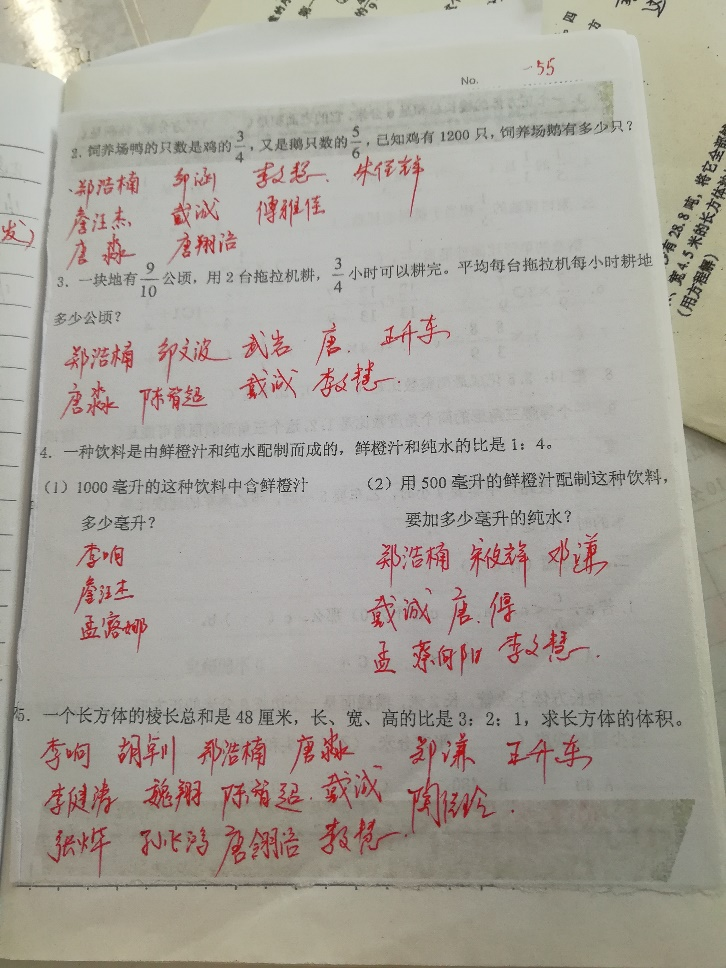 No. 55
2. 饲养场鸭的只数是鸡的3/4，又是鹅只数的5/6，已知鸡有1200只，饲养场鹅有多少只？
郑浩楠 邹涵 李文慧 朱任锋
詹江杰 戴诚 傅雅佳
唐淼 唐翔浩
3. 一块地有9/10公顷，用2台拖拉机耕，3/4小时可以耕完。平均每台拖拉机每小时耕地
多少公顷？
郑浩楠 邹文波 武岩 唐 王升东
唐淼 陈智超 戴诚 李文慧
4. 一种饮料是由鲜橙汁和纯水配制而成的，鲜橙汁和纯水的比是1：4。
（1）1000毫升的这种饮料中含鲜橙汁
多少毫升？
李响
詹江杰
孟露娜
（2）用500毫升的鲜橙汁配制这种饮料，
要加多少毫升的纯水？
郑浩楠 邓谦
戴诚 唐 傅
孟 蔡向阳 李文慧
5. 一个长方体的棱长总和是48厘米，长、宽、高的比是3：2：1，求长方体的体积。
李响 胡卓川 郑浩楠 唐淼 郑谦 王升东
李健涛 魏翔 陈智超 戴诚
张烨 孙飞鸿 唐翔浩 李文慧
发）
有28.8吨，将它全部
宽4.5米的长方体的
（用方程解）